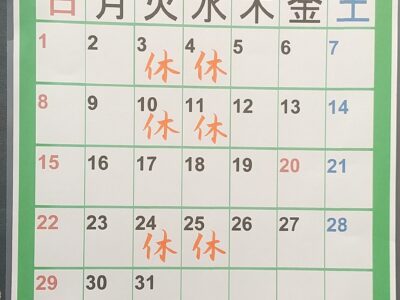 日 月 火 水 木 金 土
1 2 3 4 5 6 7
休 休
8 9 10 11 12 13 14
休 休
15 16 17 18 19 20 21
22 23 24 25 26 27 28
休 休
29 30 31